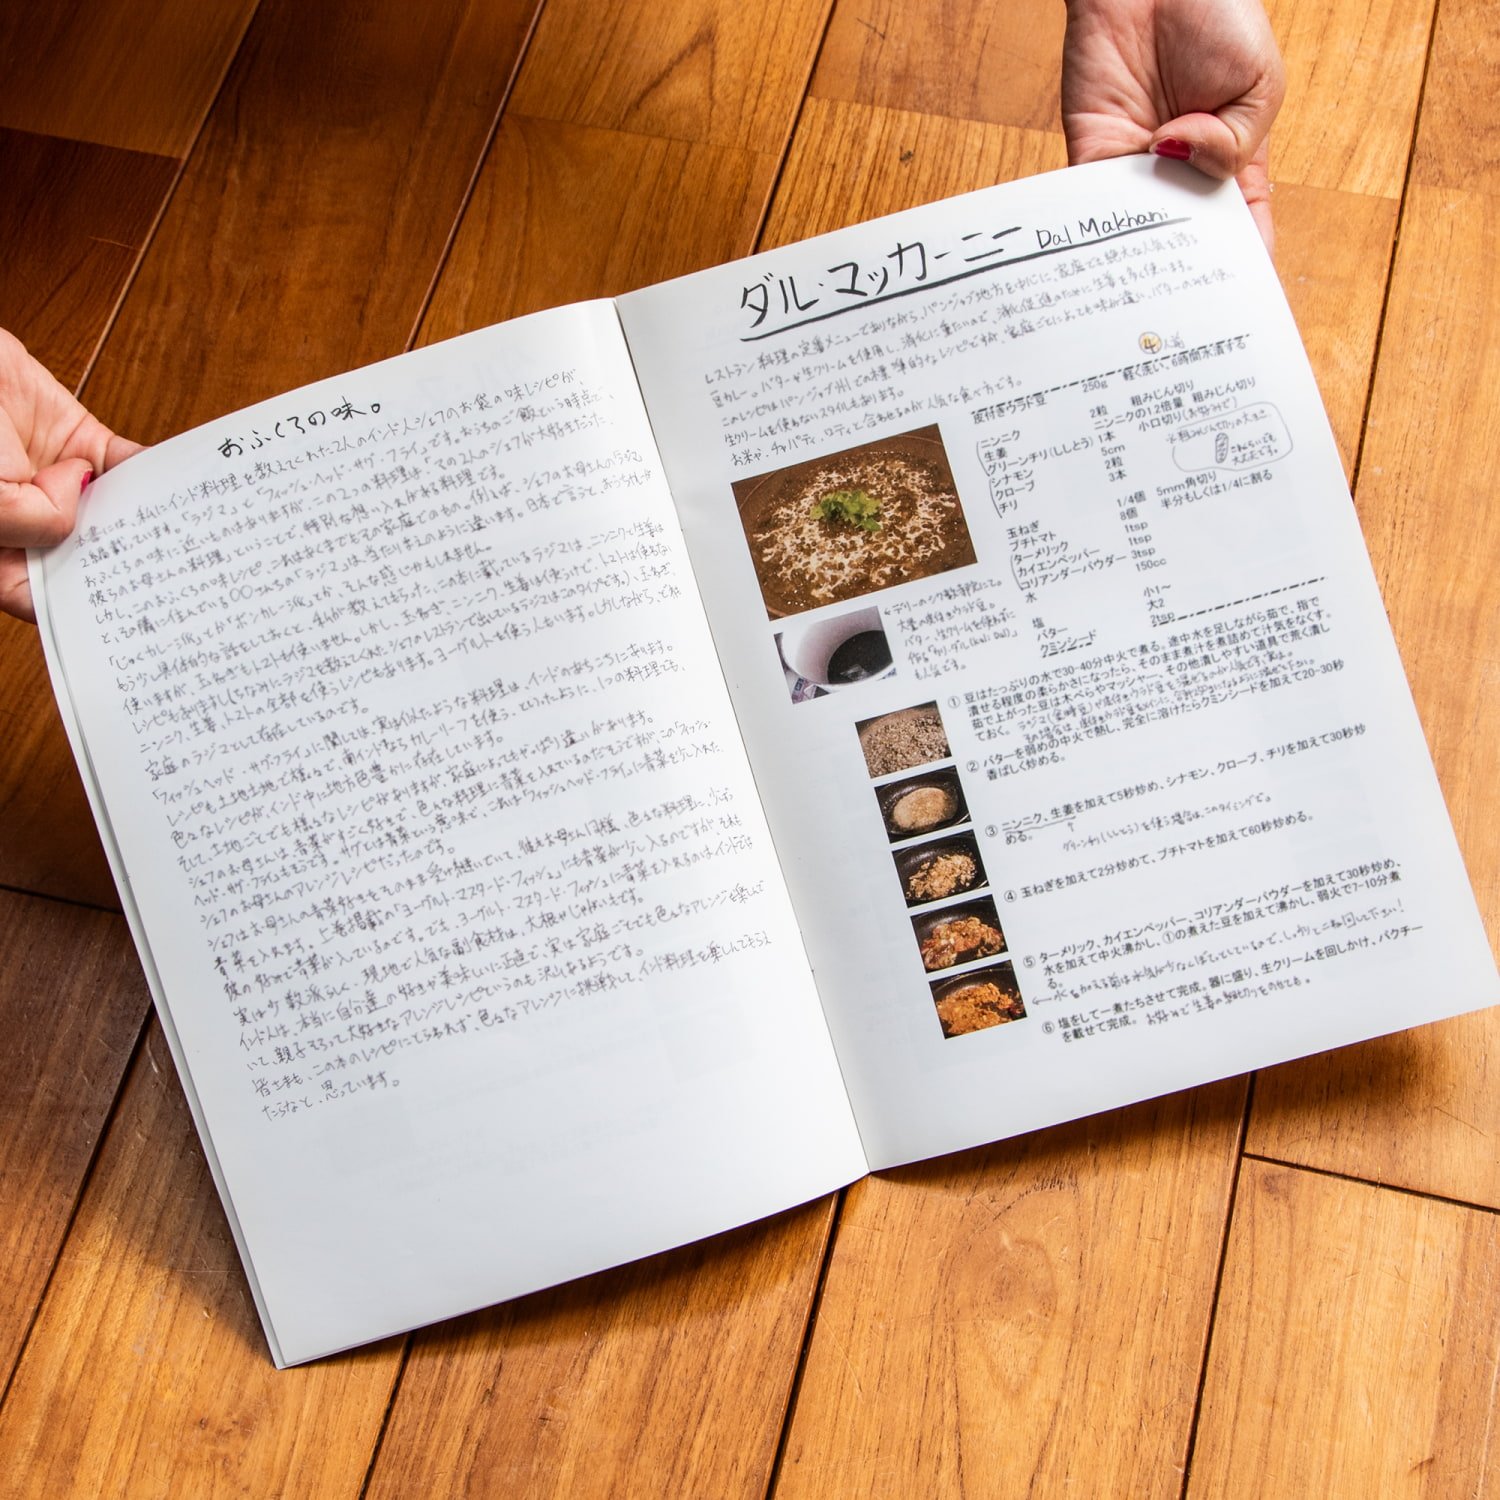 おふくろの味。
本書には、私にインド料理を教えてくれた2人のインド人シェフのお袋の味レシピが、
2つ掲載しています。「ラジマ」と「フィッシュ・ヘッド・サグ・フライ」です。おうちのご飯という時点で、
おふくろの味に近いものはありますが、この2つの料理は、その2人のシェフが大好きだった、
彼らのお母さんの料理ということで、特別な想い入れがある料理です。
しかし、このおふくろの味レシピ、これはあくまでもその家庭でのもの。例えば、シェフのお母さんの「ラジマ」
と、その隣に住んでいる〇〇さんちの「ラジマ」は、当たりまえのように違います。日本で言うと、おうちカレーが
「じゃがカレー派」とか「ポンカレー派」とか、そんな感じかもしれません。
もう少し具体的な話をしておくと、私が教えてもらった、この本に載っているラジマは、ニンニクと生姜は
使いますが、玉ねぎもトマトも使いません。しかし、玉ねぎ、ニンニク、生姜は使うけど、トマトは使わない
レシピもあります(ちなみにラジマを教えてくれたシェフのレストランで出しているラジマはこのタイプです)、玉ねぎ、
ニンニク、生姜、トマトの全部を使うレシピもあります。ヨーグルトを使う人もいます。しかしながら、どれも
家庭のラジマとして存在しているのです。
「フィッシュヘッド・サグ・フライ」に関しては、実は似たような料理は、インドのあちこちにあります。
レシピも土地土地で様々で、南インドならカレーリーフを使う、といったように、1つの料理でも、
色々なレシピが、インド中に地方色豊かに存在しています。
そして、土地ごとでも様々なレシピがありますが、家庭によってもやっぱり違いがあります。
シェフのお母さんは、青菜がすごく好きで、色んな料理に青菜を入れているのだそうですが、この「フィッシュ・
ヘッド・サグ・フライ」もそうです。サグとは青菜という意味で、これは「フィッシュヘッド・フライ」に青菜を少し入れた、
シェフのお母さんのアレンジレシピだったのです。
シェフはお母さんの青菜好きをそのまま受け継いでいて、彼もお母さん同様、色々な料理に、少お
青菜を入れます。上巻掲載の「ヨーグルト・マスタード・フィッシュ」にも青菜が少し入るのですが、それも
彼の好みで青菜が入っているのです。でも、ヨーグルト・マスタード・フィッシュに青菜を入れるのはインドでは
実は少数派らしく、現地で人気な副食材は、大根やじゃがいもです。
インド人は、本当に自分達の好きや美味しいに正直で、実は家庭ごとでも色々なアレンジを楽しんで
いて、親子そろって大好きなアレンジレシピというのも沢山なるようです。
皆さまも、この本のレシピにとらわれず、色々なアレンジに挑戦して、インド料理を楽しんでもらえ
たらなと、思っています。
ダル・マッカーニー Dal Makhani
レストラン料理の定番メニューでありながら、パンジャブ地方を中心に、家庭でも絶大な人気を誇る
豆カレー。バターや生クリームを使用し、消化に重たいので、消化促進のために生姜を多く使います。
このレシピはパンジャブ州での標準的なレシピですが、家庭ごとによっても味が違い、バターのみを使い
生クリームを使わないスタイルもあります。
お米や、チャパティ、ロティと合わせるのが人気な食べ方です。
④人前
皮付きウラド豆 250g 軽く洗い、6時間水漬する
ニンニク 2粒 粗みじん切り
生姜 ニンニクの1.2倍量 粗みじん切り
グリーンチリ(ししとう) 1本 小口切り(お好みで)
シナモン 5cm
クローブ 2粒
チリ 3本
※粗みじん切りの大きさ
これくらいでも
大丈夫です。
玉ねぎ 1/4個 5mm角切り
プチトマト 8個 半分もしくは1/4に割る
ターメリック 1tsp
カイエンペッパー 1tsp
コリアンダーパウダー 3tsp
水 150cc
塩 小1〜
バター 大2
クミンシード 2tsp
←デリーのシク教寺院にて。
大量の皮付きウラド豆。
バター、生クリームを使わずに
作る「カリ・ダル(Kali Dal)」
も人気です。
① 豆はたっぷりの水で30-40分中火で煮る。途中水を足しながら茹で、指で
潰せる程度の柔らかさになったら、そのまま煮汁を煮詰めて汁気をなくす。
茹で上がった豆は木べらやマッシャー、その他潰しやすい道具で荒く潰し
ておく。
② バターを弱めの中火で熱し、完全に溶けたらクミンシードを加えて20-30秒
香ばしく炒める。
③ ニンニク、生姜を加えて5秒炒め、シナモン、クローブ、チリを加えて30秒炒
める。
↑グリーンチリ(ししとう)を使う場合は、このタイミングで。
④ 玉ねぎを加えて2分炒めて、プチトマトを加えて60秒炒める。
⑤ ターメリック、カイエンペッパー、コリアンダーパウダーを加えて30秒炒め、
水を加えて中火沸かし、①の煮えた豆を加えて沸かし、弱火で7-10分煮
る。
⑥ 塩をして一煮たちさせて完成。器に盛り、生クリームを回しかけ、パクチー
を載せて完成。 お好みで生姜の細切りをのせても。